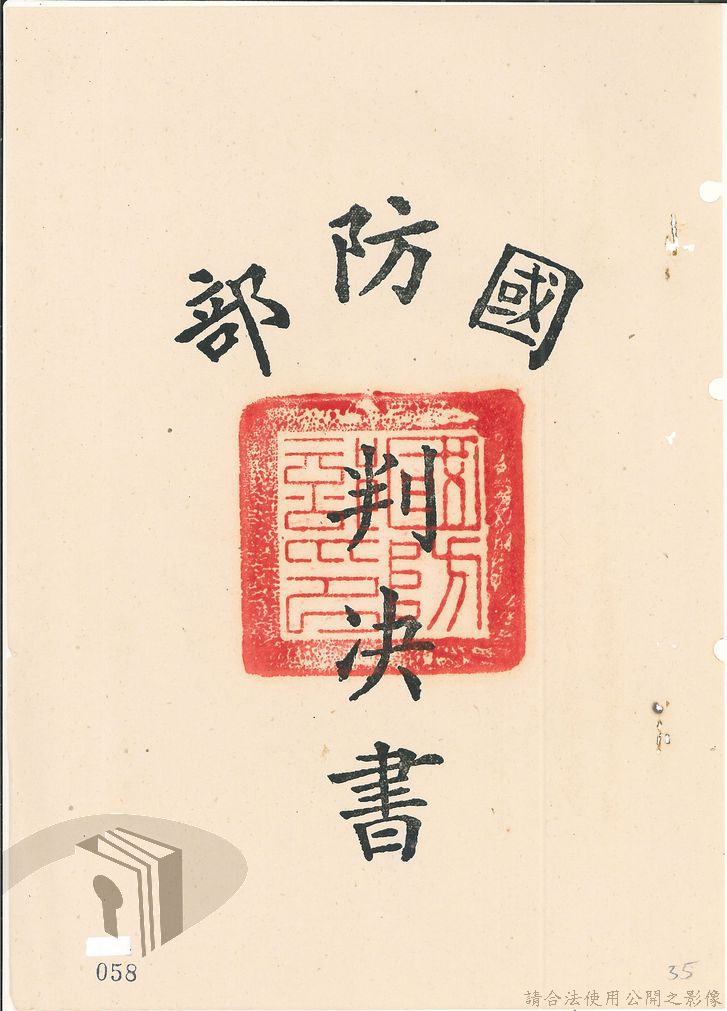 國防部
判決書
058
35
請合法使用公開之影像